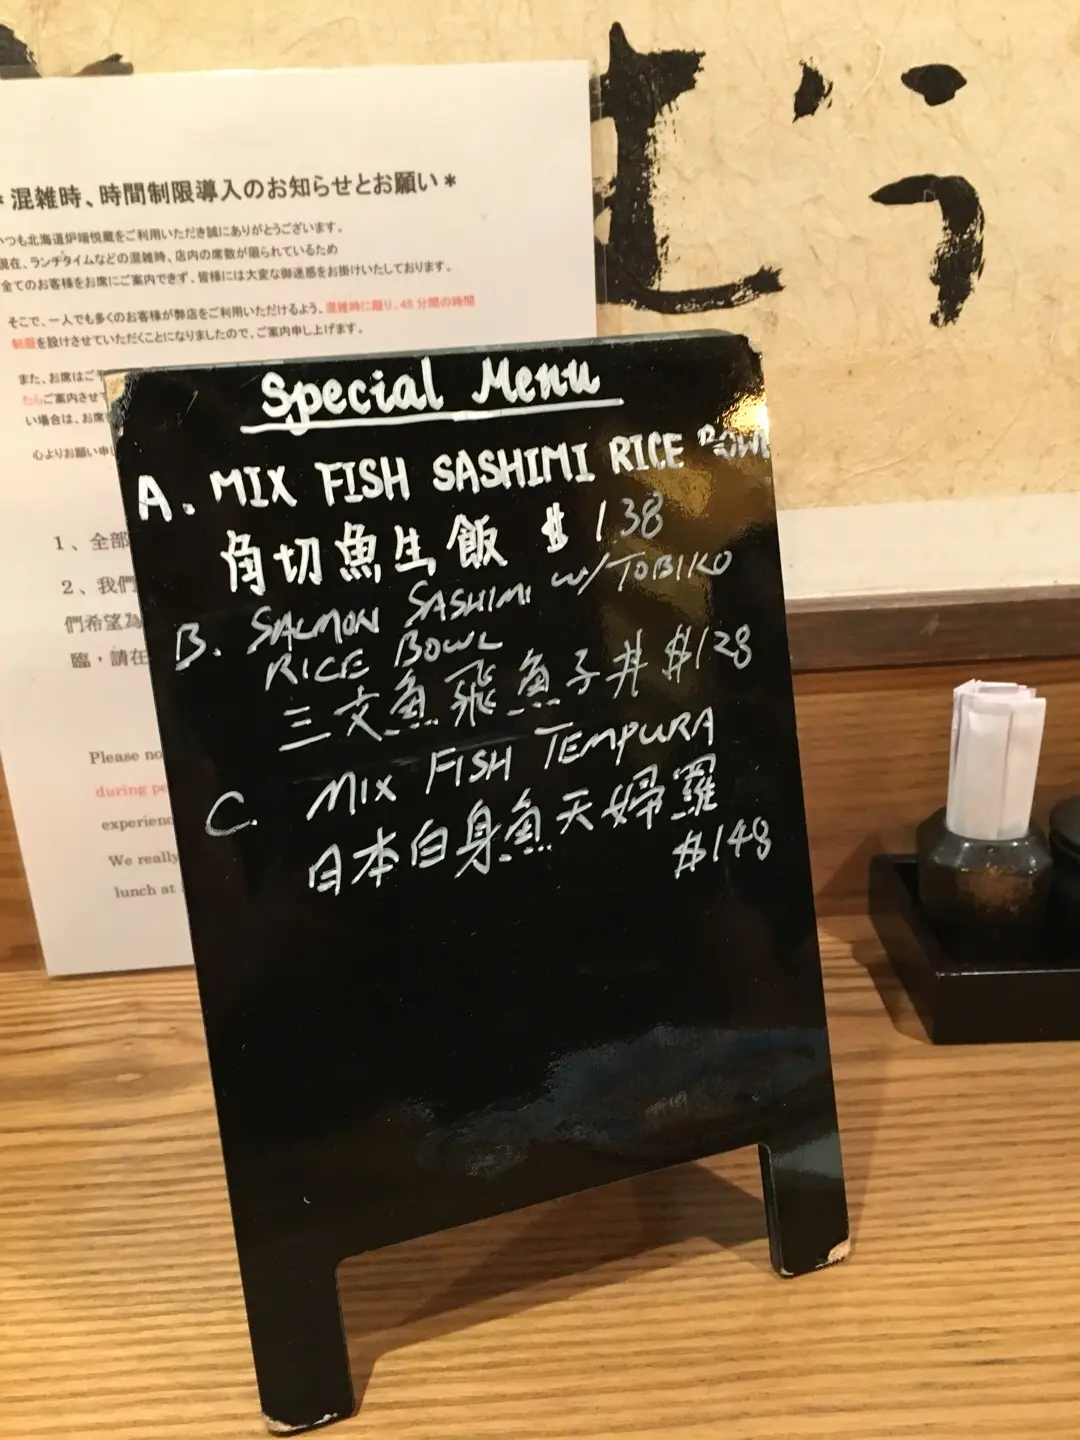 むら
* 混雑時、時間制限導入のお知らせとお願い *
いつも北海道炉端悦蔵をご利用いただき誠にありがとうございます。
現在、ランチタイムなどの混雑時、店内の席数が限られているため
全てのお客様をお席にご案内できず、皆様には大変な御迷惑をお掛けいたしております。
そこで、一人でも多くのお客様が弊店をご利用いただけるよう、混雑時に限り、45分間の時間
制限を設けさせていただくことになりましたので、ご案内申し上げます。
また、お席はご
たらご案内させて
い場合は、お席
心よりお願い申し
1、全部
2、我們
們希望為
臨，請在
Please no
during pe
experienc
We really
lunch at
Special Menu
A. MIX FISH SASHIMI RICE BOWL
角切魚生飯 $138
B. SALMON SASHIMI w/TOBIKO
RICE BOWL
三文魚飛魚子丼 $128
C. MIX FISH TEMPURA
日本白身魚天婦羅
$148